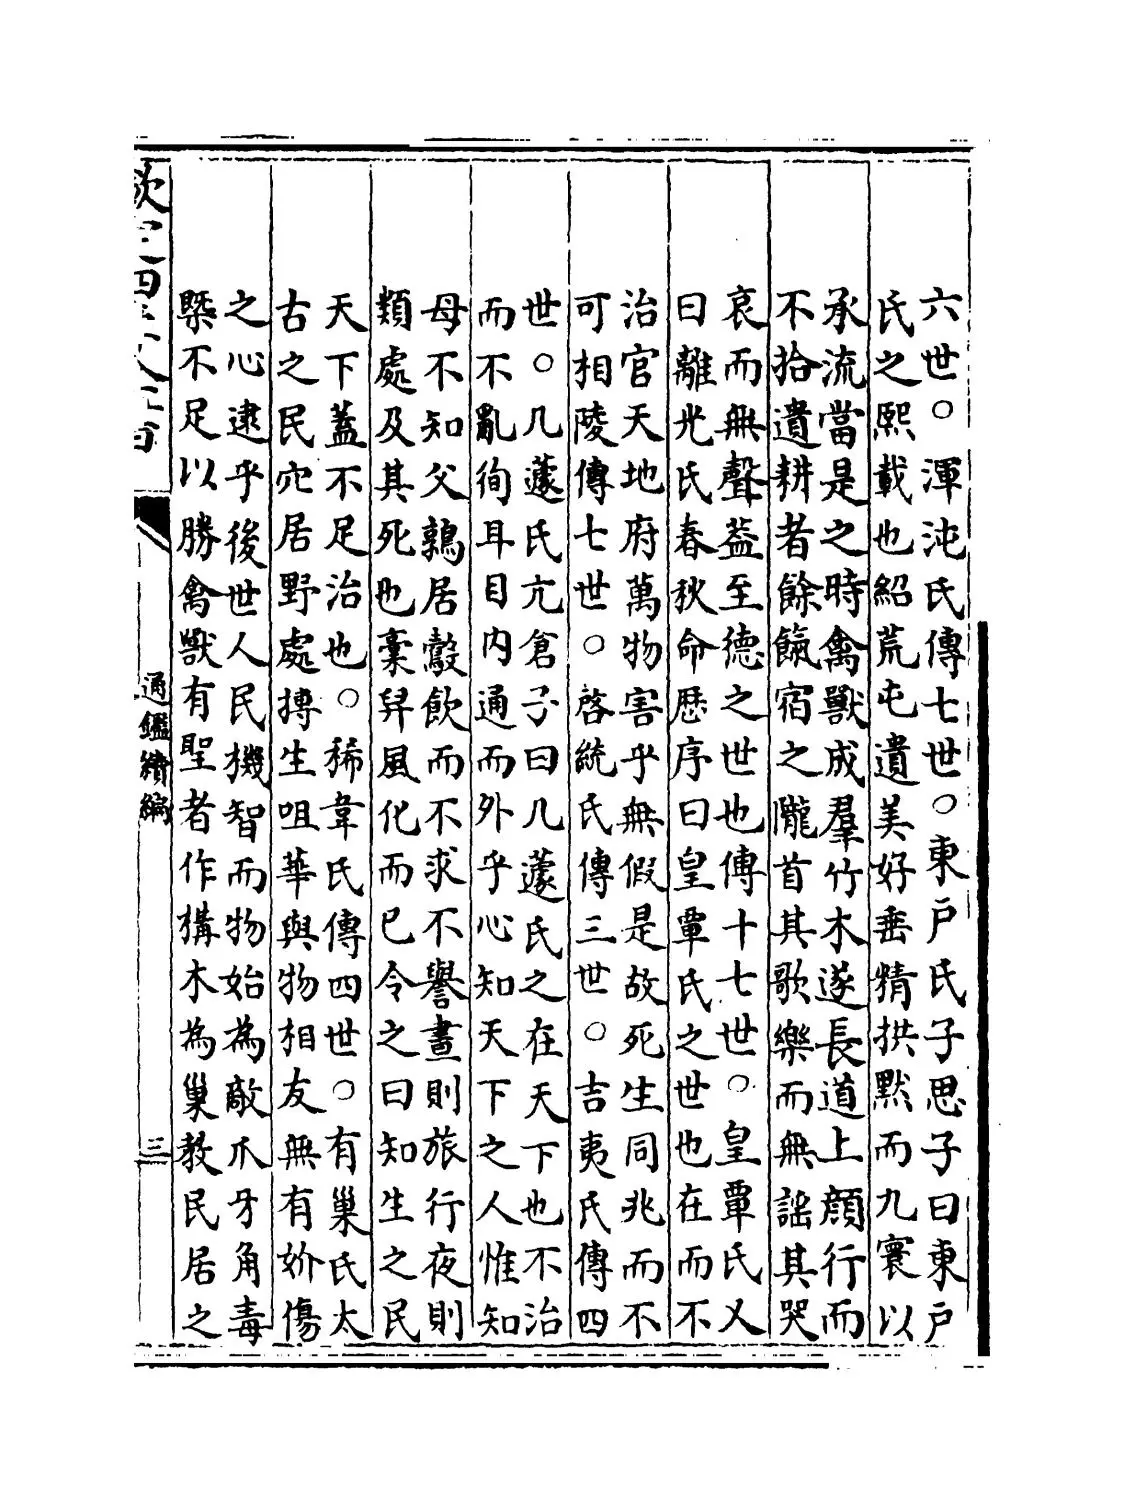 六世○渾沌氏傳七世○東戶氏子思子曰東戶
氏之熙載也紹荒屯遺美好垂精拱默而九寰以
承流當是之時禽獸成羣竹木遂長道上顔行而
不拾遺耕者餘餼宿之隴首其歌樂而無謡其哭
哀而無聲葢至德之世也傳十七世○皇覃氏又
曰離光氏春秋命歴序曰皇覃氏之世也在而不
治官天地府萬物害乎無假是故死生同兆而不
可相陵傳七世○啓統氏傳三世○吉夷氏傳四
世○几蘧氏亢倉子曰几蘧氏之在天下也不治
而不亂徇耳目内通而外乎心知天下之人惟知
母不知父鶉居鷇飲而不求不譽晝則旅行夜則
類處及其死也稾舁風化而已令之曰知生之民
天下蓋不足治也○豨韋氏傳四世○有巢氏太
古之民穴居野處搏生咀華與物相友無有妎傷
之心逮乎後世人民機智而物始為敵爪牙角毒
槩不足以勝禽獸有聖者作構木為巢教民居之
欽定四庫全書
通鑑續編
三